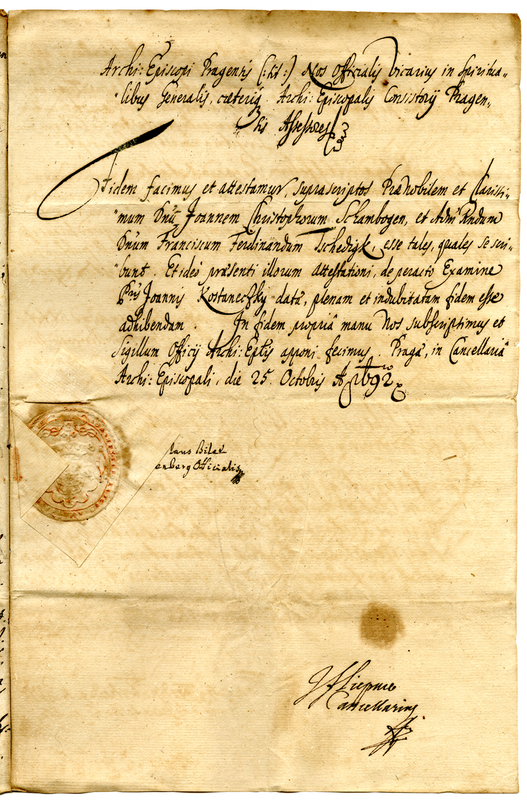 Archi: Episcopi Pragensis (: hıt :) Nos Officialis Vicarius in Spiritua-
libus Generalis, cæteriq Archi: Episcopalis Consistorij Pragen-
sis Assessores
Fidem facimus et attestamur, suprascriptos Prænobilem et Clarissi-
mum Dnũ Joannem Christophorum Schambogen, et Admᵐ Rndum
Dnum Franciscum Ferdinandum Tschedigk, esse tales, quales se scri-
bunt. Et ideo præsenti illorum attestationi, de peracto Examine
Joannis Kostaneczky datæ, plenam et indubitatam fidem esse
adhibendam. In fidem propriâ manu Nos subscripsimus et
Sigillum Officij Archi: Eplis apponi fecimus. Pragæ, in Cancellariâ
Archi: Episcopali, die 25. Octobris Aō 1692
Bilek
enberg Officialis
Cancellarius